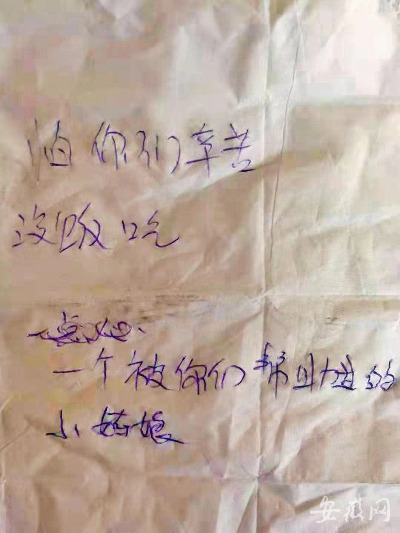 怕你们辛苦
没饭吃
一个被你们帮助过的
小姑娘
安徽网